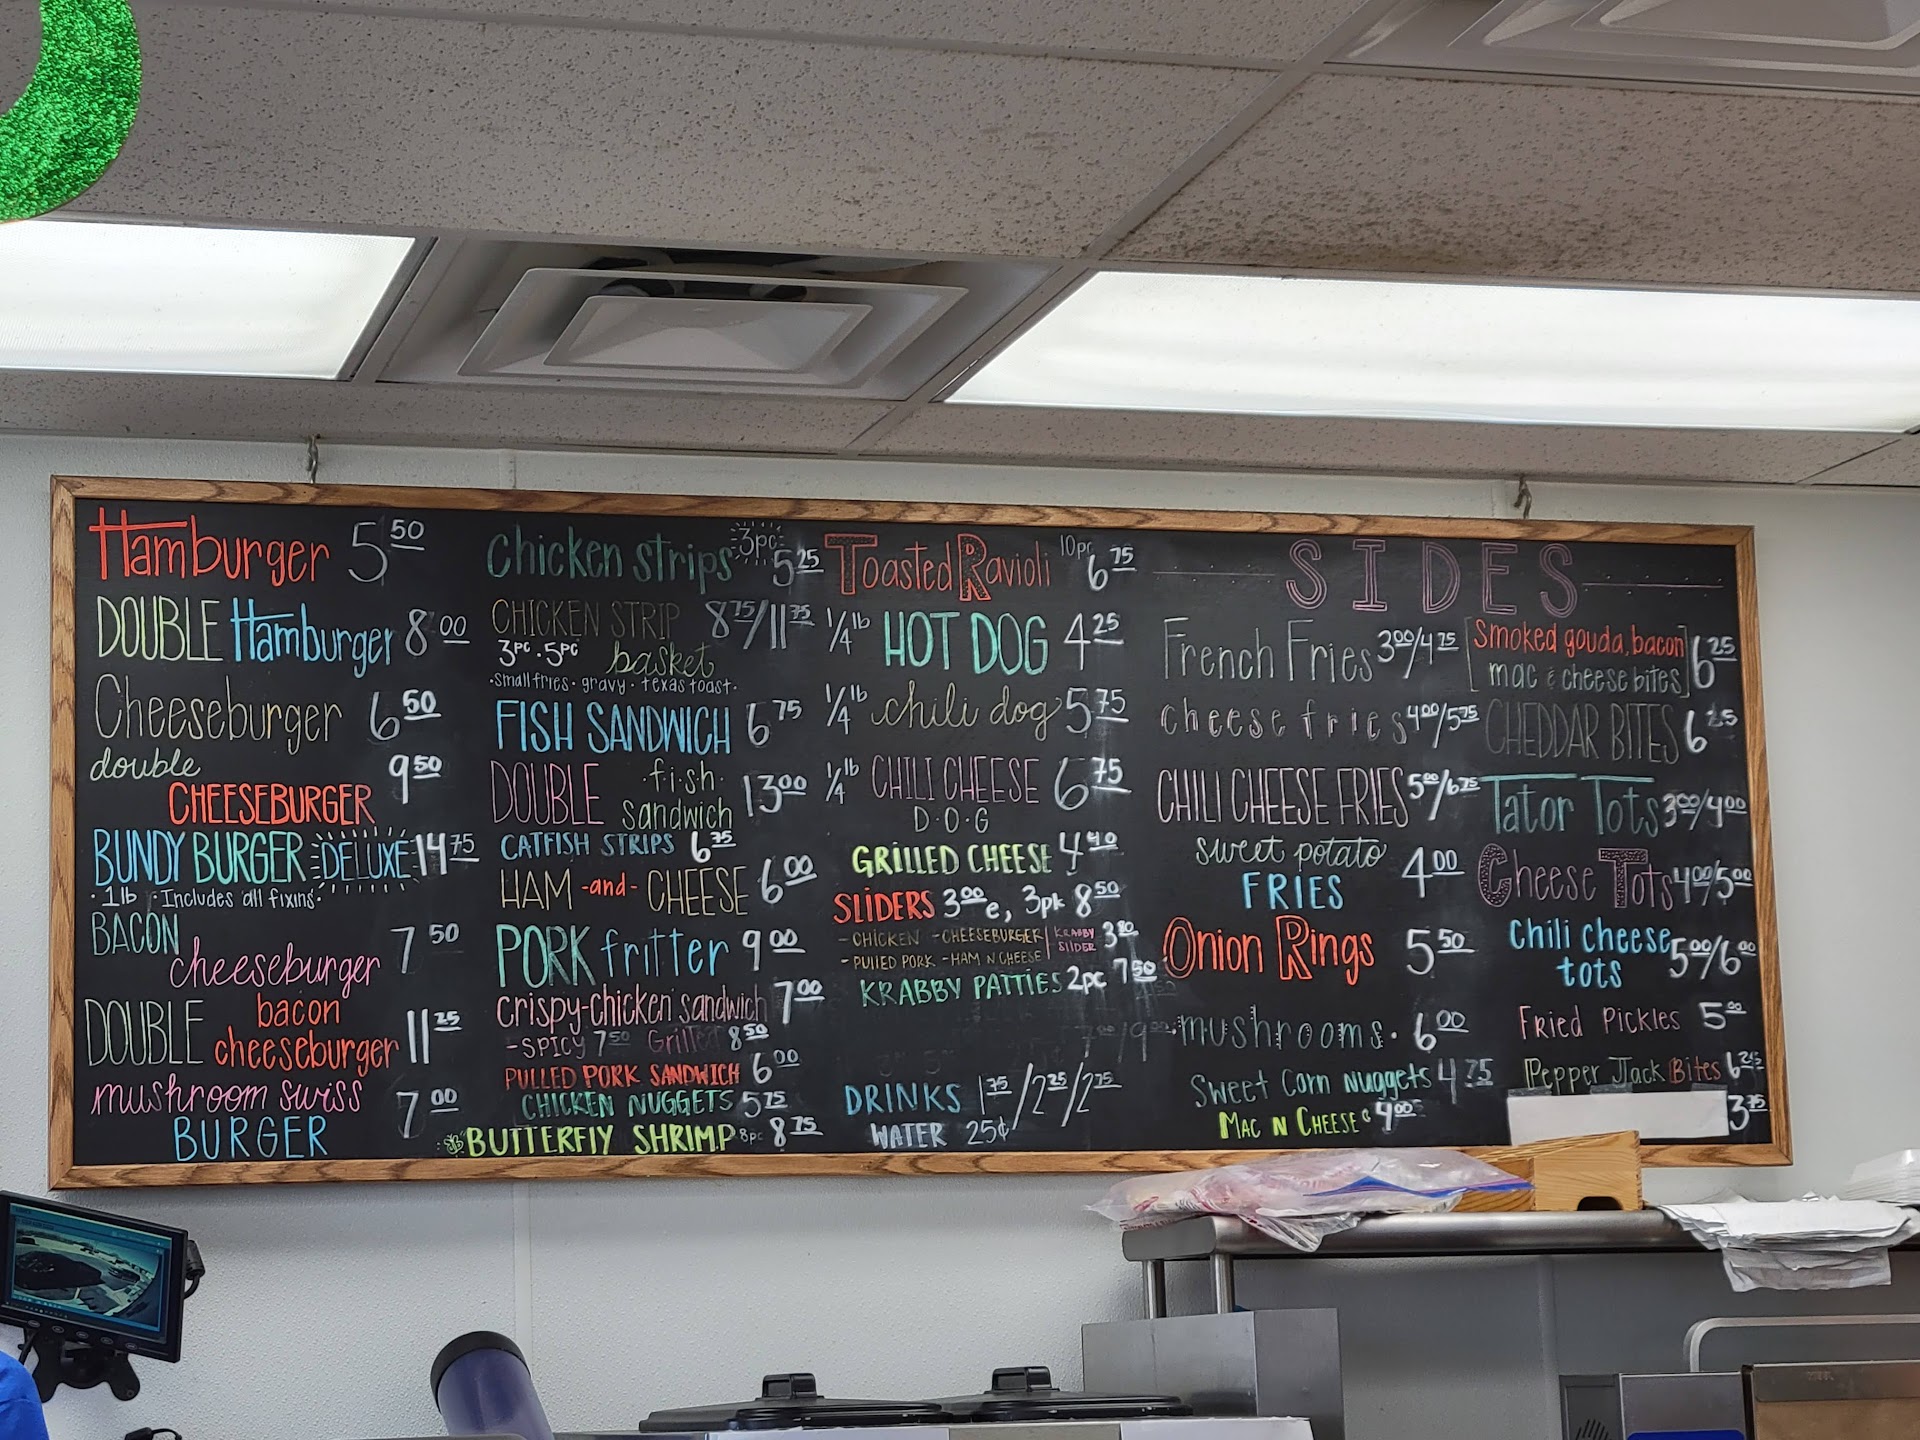 Hamburger 5 50
DOUBLE Hamburger 8 00
Cheeseburger 6 50
double 9 50
CHEESEBURGER
BUNDY BURGER DELUXE 14 75
· 1lb · Includes all fixins·
BACON
cheeseburger 7 50
DOUBLE bacon cheeseburger 11 25
mushroom swiss
BURGER 7 00
chicken strips 3pc 5 25
CHICKEN STRIP 8 75/11 75
3pc . 5pc basket
·small fries · gravy · texas toast·
FISH SANDWICH 6 75
DOUBLE fish sandwich 13 00
CATFISH STRIPS 6 75
HAM -and- CHEESE 6 00
PORK fritter 9 00
crispy-chicken sandwich 7 00
-SPICY 7 50 Grilled 8 50
PULLED PORK SANDWICH 6 00
CHICKEN NUGGETS 5 75
BUTTERFLY SHRIMP 8pc 8 75
Toasted Ravioli 10pc 6 75
1/4 lb HOT DOG 4 25
1/4 lb chili dog 5 75
1/4 lb CHILI CHEESE 6 75
D·O·G
GRILLED CHEESE 4 40
SLIDERS 3 00 e, 3pk 8 50
-CHICKEN -CHEESEBURGER
-PULLED PORK -HAM N CHEESE
KRABBY SLIDER
KRABBY PATTIES 2pc 7 50
DRINKS 1 75/2 25/2 75
WATER 25¢
SIDES
French Fries 3 00/4 75
cheese fries 4 00/5 75
CHILI CHEESE FRIES 5 00/6 75
sweet potato
FRIES 4 00
Onion Rings 5 50
mushrooms. 6 00
Sweet Corn Nuggets 4 75
MAC N CHEESE 4 00
[Smoked gouda, bacon
mac & cheese bites] 6 25
CHEDDAR BITES 6 25
Tator Tots 3 00/4 00
Cheese Tots 4 00/5 00
Chili cheese
tots 5 00/6 00
Fried Pickles 5 00
Pepper Jack Bites 6 25
3 75